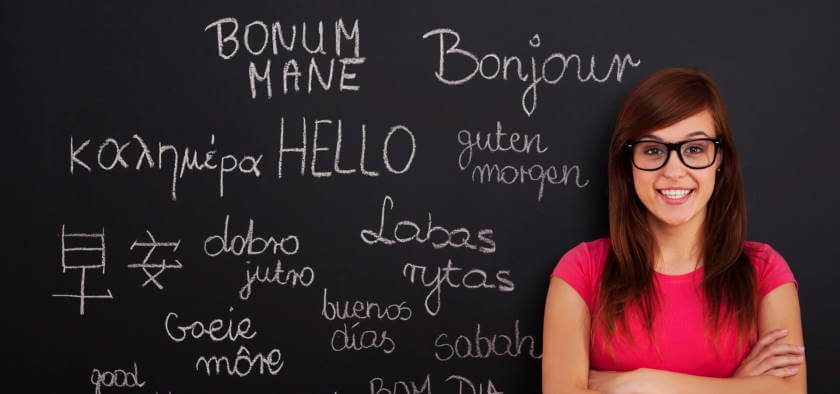 BONUM
MANE
Bonjour
καλημέρα
HELLO
guten
morgen
早安
dobro
jutro
Labas
rytas
Goeie
môre
buenos
días
sabah
good
BOM DIA